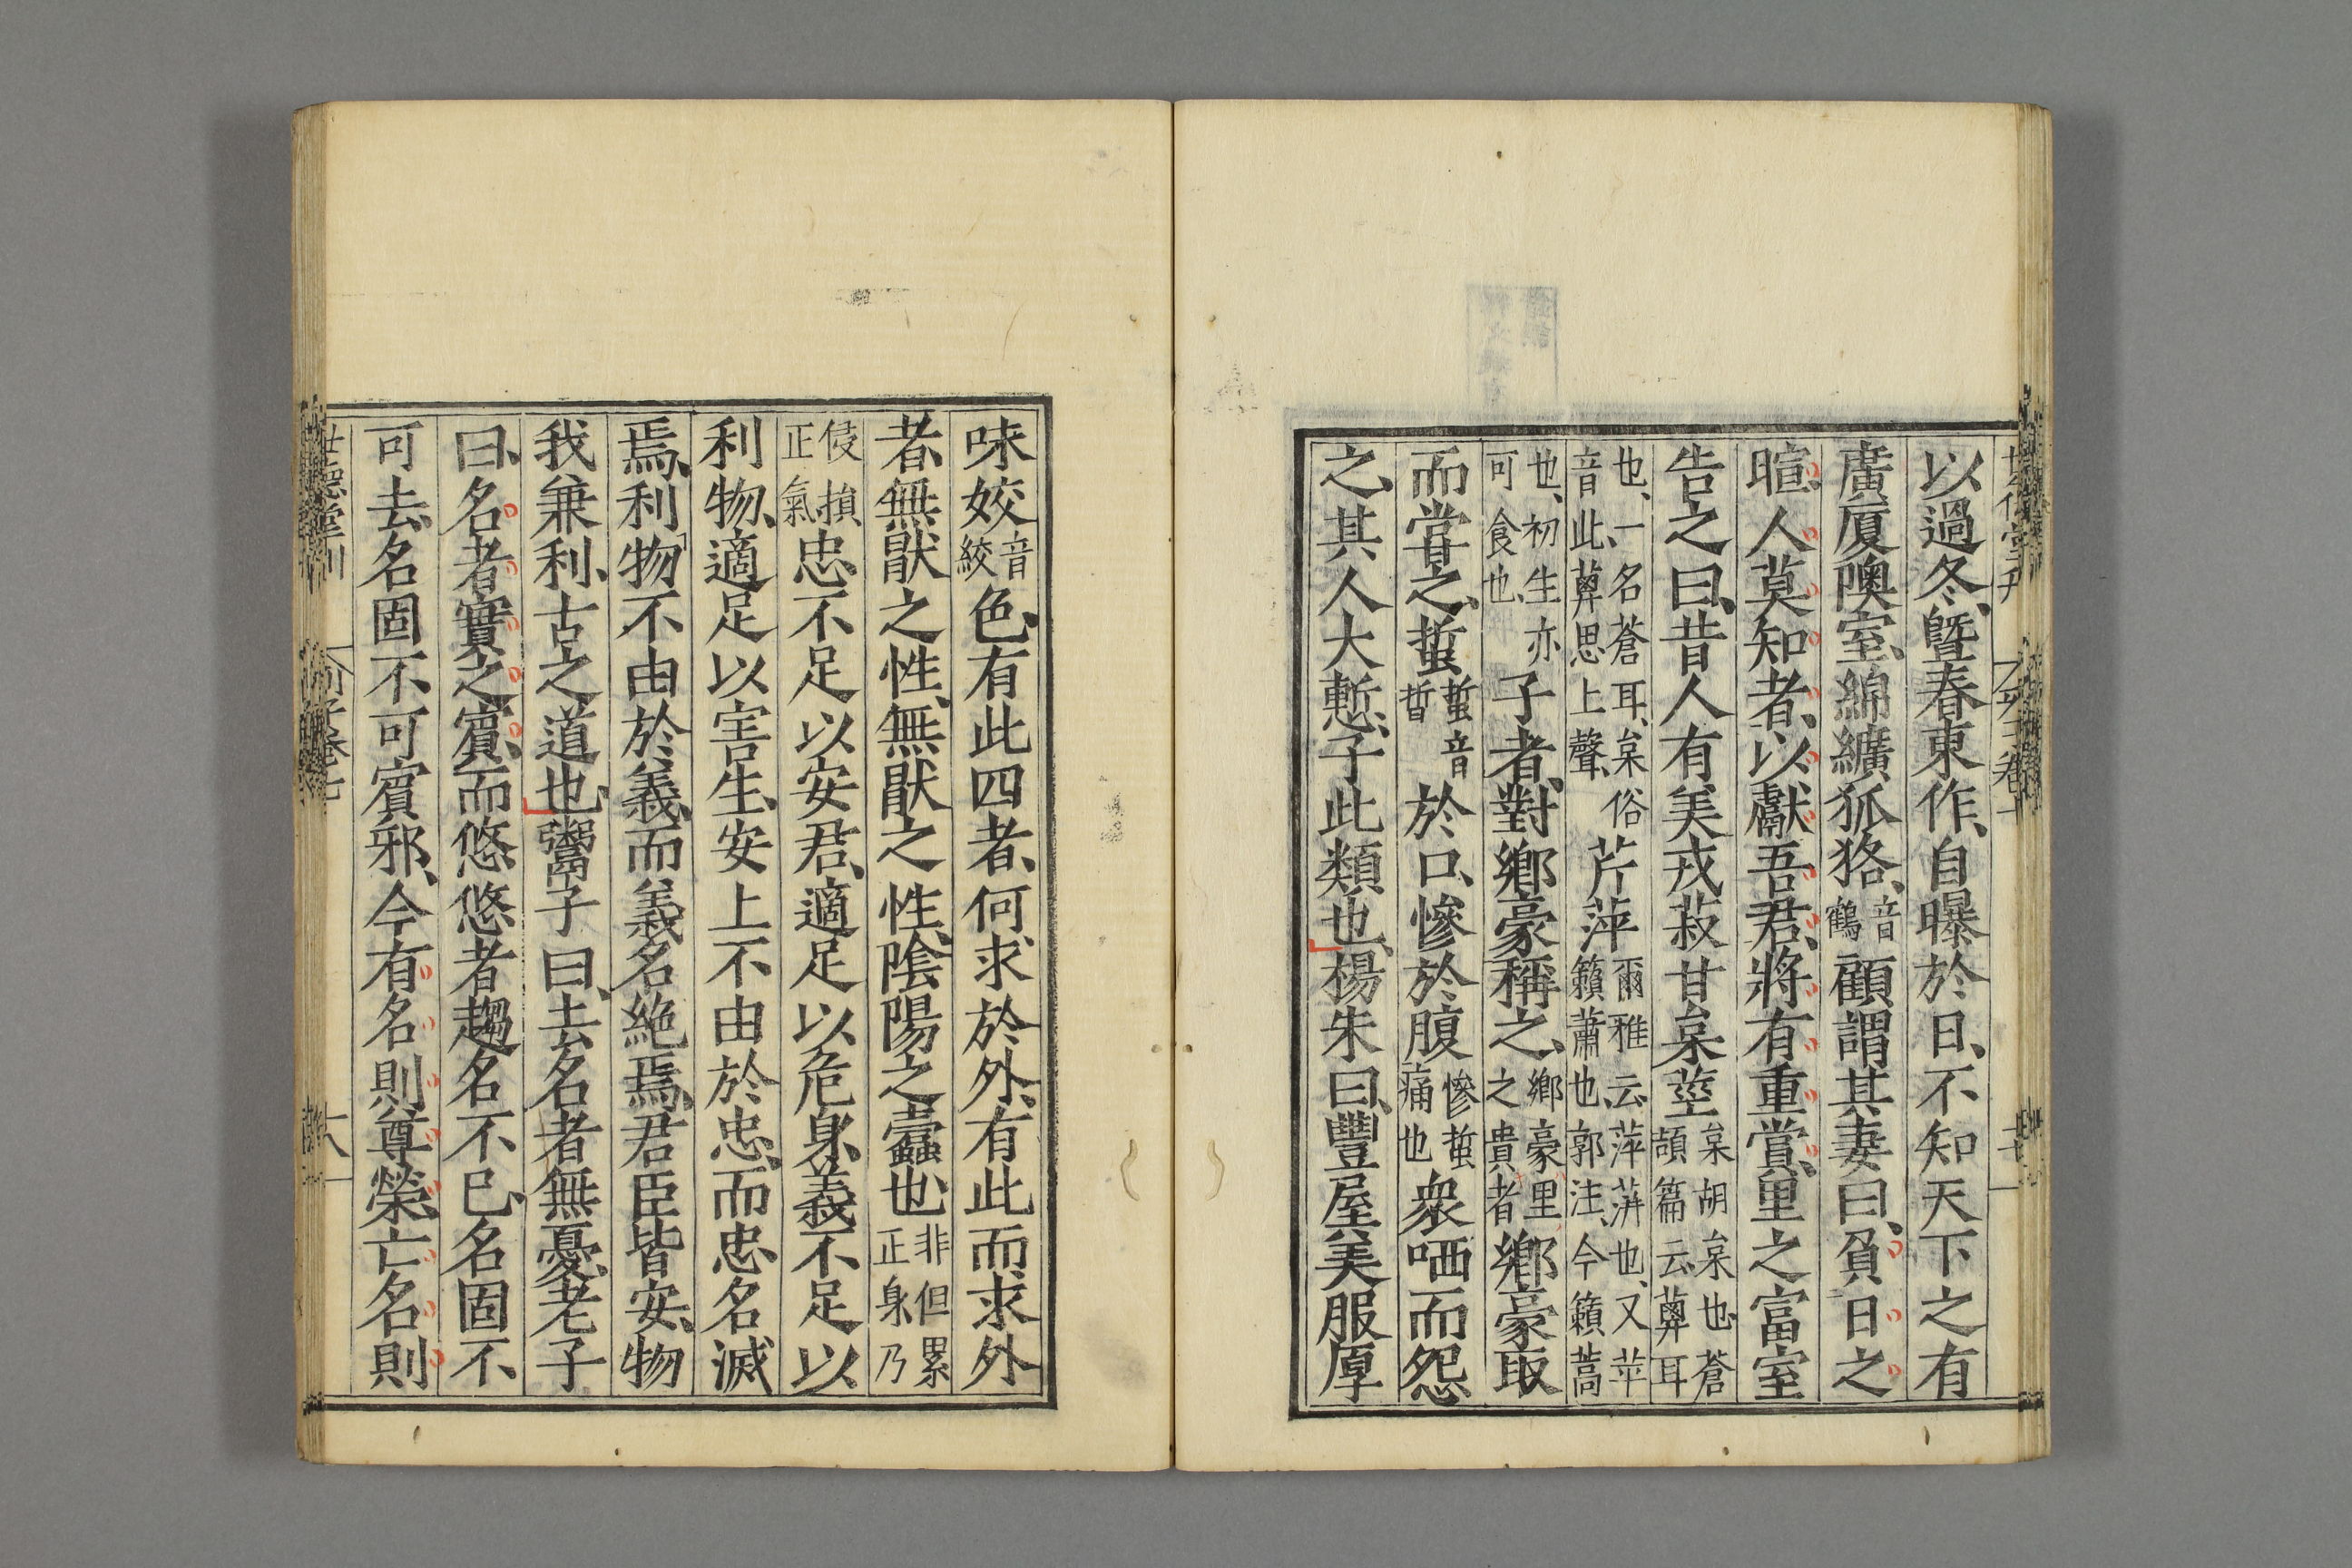 以過冬、曁春東作、自曝於日、不知天下之有
廣厦隩室、綿纊狐狢、音鶴顧謂其妻曰、負日之
暄、人莫知者、以獻吾君、將有重賞、里之富室
告之曰、昔人有美戎菽甘枲莖枲胡枲也、蒼頡篇云、䔺耳
也、一名蒼耳、枲俗音此、䔺思上聲、芹萍爾雅云、萍蓱也、又苹籟蕭也、郭注、今籟蒿
也、初生亦可食也、子者、對鄉豪稱之、鄉豪里之貴者鄉豪取
而甞之、蜇蜇音哲於口、慘於腹慘蜇痛也衆哂而怨
之、其人大慙、子此類也、楊朱曰、豐屋美服厚
味姣音絞色、有此四者、何求於外、有此而求外
者、無猒之性、無猒之性、陰陽之蠹也、非但累正身、乃
侵損正氣忠不足以安君、適足以危身、義不足以
利物、適足以害生、安上不由於忠、而忠名滅
焉、利物不由於義、而義名絶焉、君臣皆安、物
我兼利、古之道也、鬻子曰、去名者無憂、老子
曰、名者實之賓、而悠悠者趨名不已、名固不
可去、名固不可賓邪、今有名則尊榮、亡名則
世德堂刊
列子卷七
十八